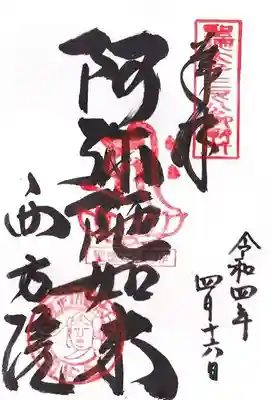 奉拝
阿弥陀如来
西方院
令和四年
四月十六日